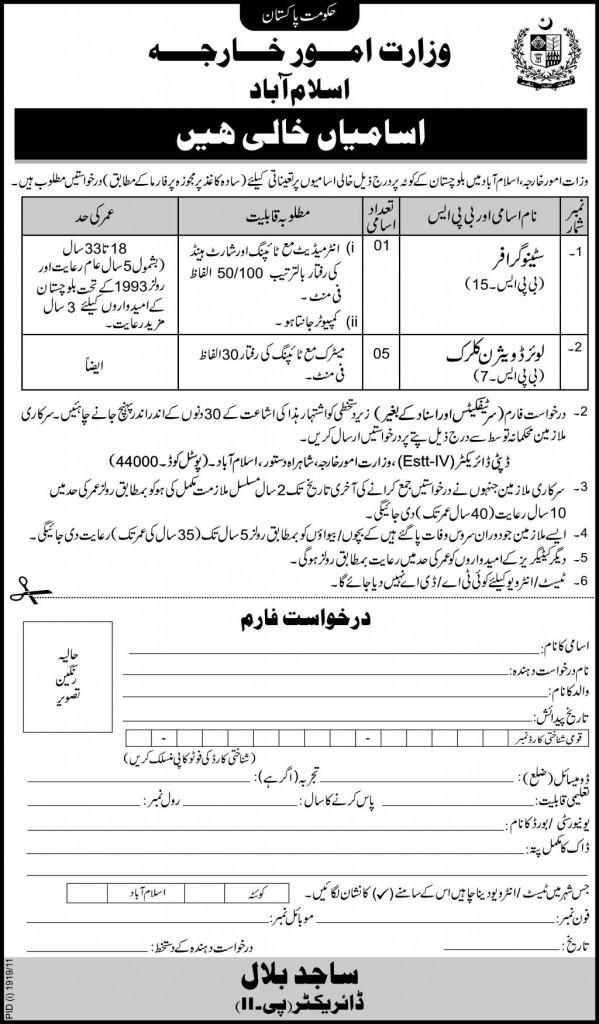 حکومت پاکستان
وزارت امور خارجہ
اسلام آباد
اسامیاں خالی ہیں
وزارت امور خارجہ، اسلام آباد میں بلوچستان کے کوٹہ پر درج ذیل خالی اسامیوں پر تعیناتی کیلئے (سادہ کاغذ پر مجوزہ پرفارما کے مطابق) درخواستیں مطلوب ہیں۔
نمبر شمار
نام اسامی اور بی پی ایس
تعداد اسامی
مطلوبہ قابلیت
عمر کی حد
1۔
سٹینوگرافر
(بی پی ایس۔15)
01
i) انٹرمیڈیٹ مع ٹائپنگ اور شارٹ ہینڈ
کی رفتار بالترتیب 50/100 الفاظ
فی منٹ۔
ii) کمپیوٹر جانتا ہو۔
18 تا 33 سال
(بشمول 5 سال عام رعایت اور
رولز 1993 کے تحت بلوچستان
کے امیدواروں کیلئے 3 سال
مزید رعایت۔
2۔
لوئر ڈویژن کلرک
(بی پی ایس۔7)
05
میٹرک مع ٹائپنگ کی رفتار 30 الفاظ
فی منٹ۔
ایضاً
2۔ درخواست فارم (سرٹیفکیٹس اور اسناد کے بغیر) زیر دستخطی کو اشتہار ہذا کی اشاعت کے 30 دنوں کے اندر اندر پہنچ جانے چاہئیں۔ سرکاری
ملازمین محکمانہ توسط سے درج ذیل پتے پر درخواستیں ارسال کریں۔
ڈپٹی ڈائریکٹر (Estt-IV)، وزارت امور خارجہ، شاہراہ دستور، اسلام آباد۔ (پوسٹل کوڈ۔44000)
3۔ سرکاری ملازمین جنہوں نے درخواستیں جمع کرانے کی آخری تاریخ تک 2 سال مسلسل ملازمت مکمل کی ہو کو بمطابق رولز عمر کی حد میں
10 سال رعایت (40 سال عمر تک) دی جائیگی۔
4۔ ایسے ملازمین جو دوران سروس وفات پا گئے ہیں کے بچوں/بیواؤں کو بمطابق رولز 5 سال تک (35 سال کی عمر تک) رعایت دی جائیگی۔
5۔ دیگر کیٹیگریز کے امیدواروں کو عمر کی حد میں رعایت بمطابق رولز ہوگی۔
6۔ ٹیسٹ/انٹرویو کیلئے کوئی ٹی اے/ڈی اے نہیں دیا جائے گا۔
درخواست فارم
حالیہ
رنگین
تصویر
اسامی کا نام:
نام درخواست دہندہ:
والد کا نام:
تاریخ پیدائش:
قومی شناختی کارڈ نمبر - -
(شناختی کارڈ کی فوٹو کاپی منسلک کریں)
ڈومیسائل (ضلع): تجربہ (اگر ہے):
تعلیمی قابلیت: پاس کرنے کا سال: رول نمبر:
یونیورسٹی/بورڈ کا نام:
ڈاک کا مکمل پتہ:
جس شہر میں ٹیسٹ/انٹرویو دینا چاہیں اس کے سامنے (✓) کا نشان لگائیں۔ کوئٹہ اسلام آباد
فون نمبر: موبائل نمبر:
تاریخ: درخواست دہندہ کے دستخط:
ساجد بلال
ڈائریکٹر (پی۔II)
PID (i) 1919/11